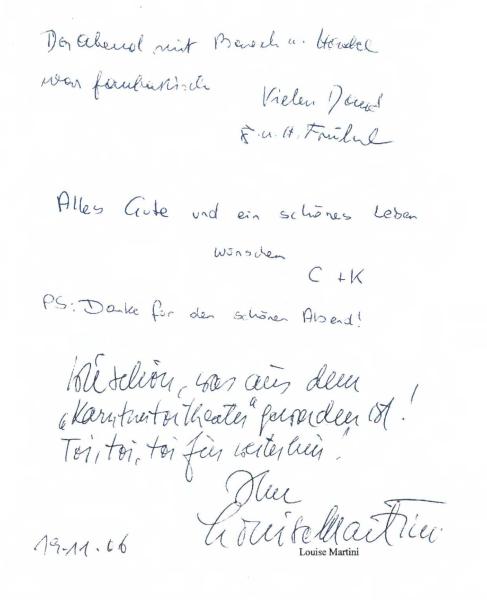 Der Abend mit Barock u. Händel
war fantastisch
Vielen Dank
u. H.
Alles Gute und ein schönes Leben
wünschen
C + K
PS: Danke für den schönen Abend!
Wie schön, was aus dem
„Kärntnertortheater" geworden ist!
Toi, toi, toi für weiterhin!
Ihre
Louise Martini
Louise Martini
19.11.06